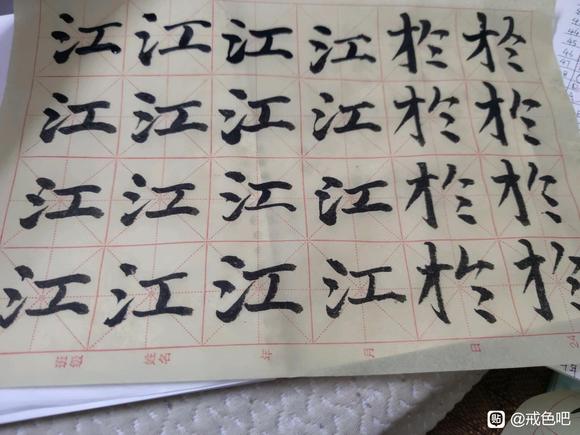 江江江江於於
江江江江於於
江江江江於於
江江江江於於
班级 姓名 年 月 日
贴 @戒色吧